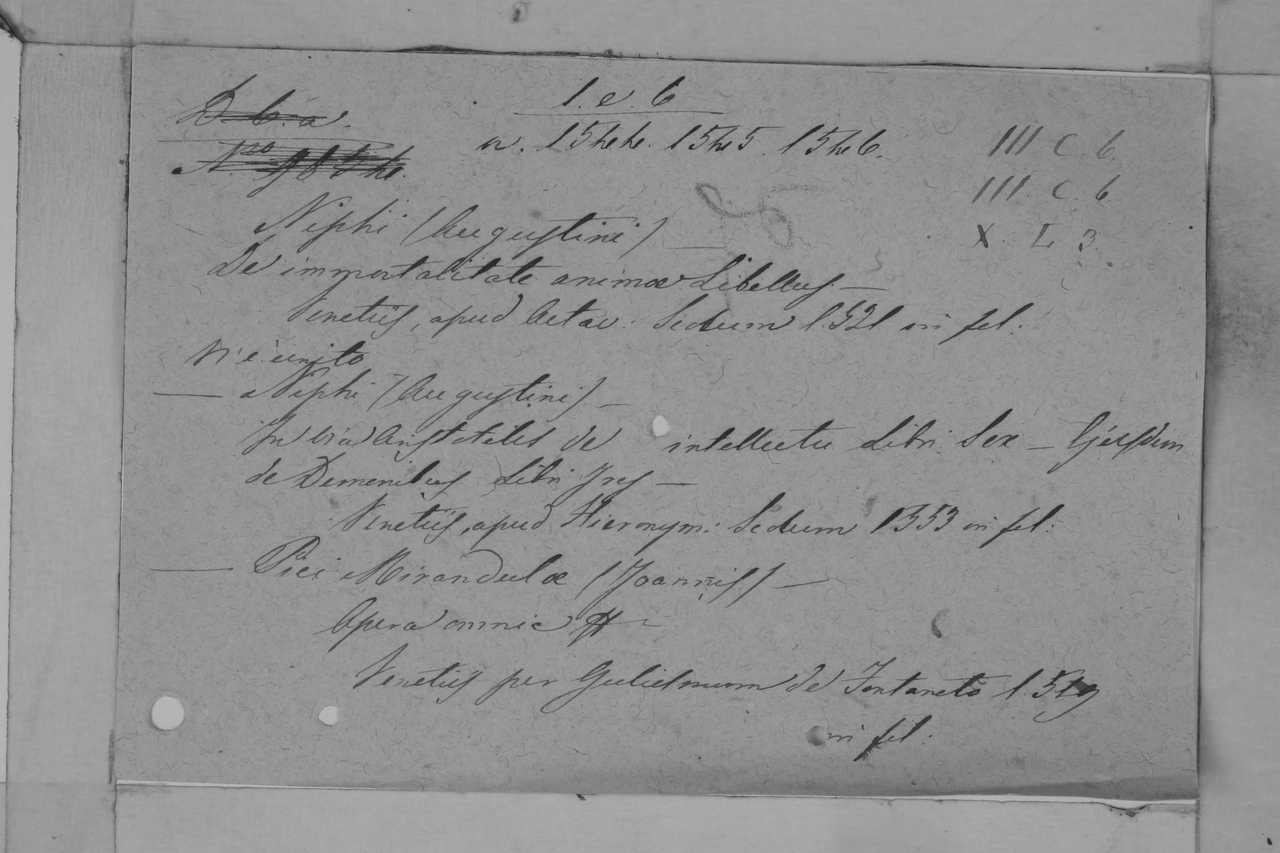 D. 6. a.
1. e. 6
N.ro 9844.
n. 1544. 1545. 1546.
III C. 6.
III. C. 6
X. L 3.
Niphi (Augustini) —
De immortalitate animæ Libellus —
Venetiis, apud Octav: Scotum 1521 in fol:
Vi è unito
— Niphi (Augustini) —
In via Aristotelis de intellectu Libri Sex — Ejusdem
de Demonibus Libri Tres —
Venetiis, apud Hieronym: Scotum 1553 in fol:
— Pici Mirandulæ (Joannis) —
Opera omnia —
Venetiis per Gulielmum de Fontaneto 1519
in fol.